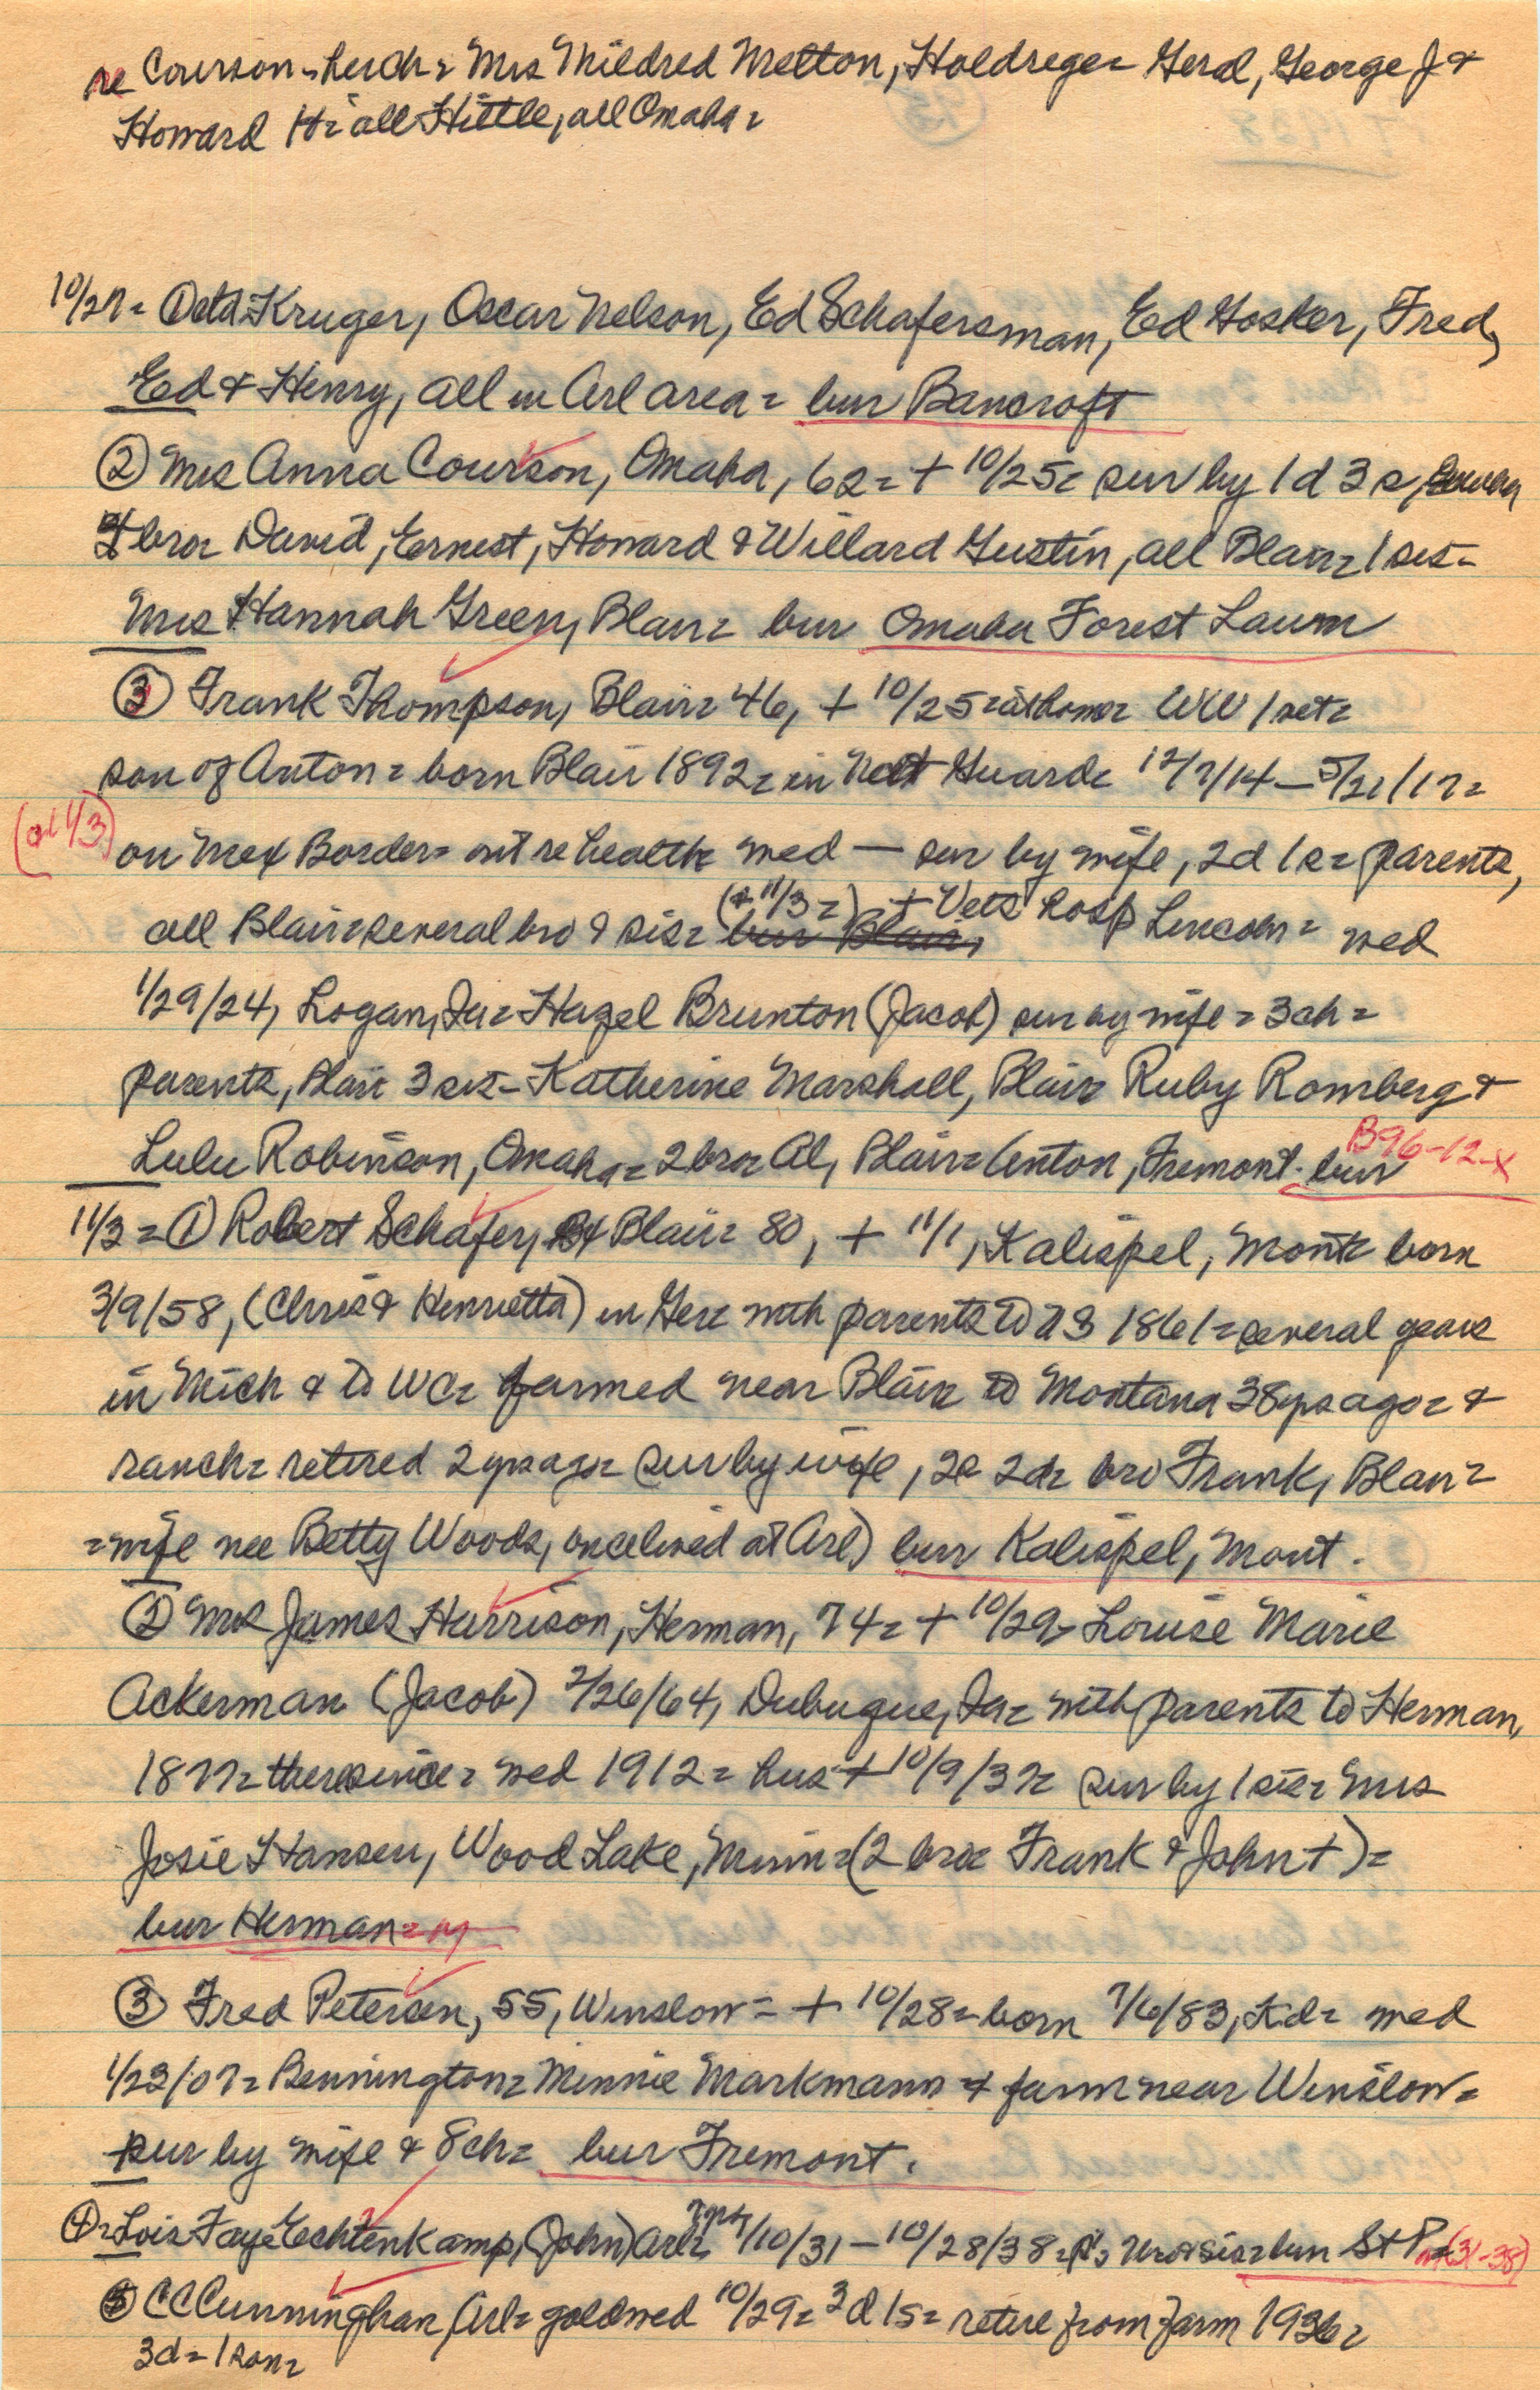 re Courson = her ch = Mrs Mildred Melton, Holdrege = Geral, George J &
Howard H = all Hittle, all Omaha =
10/27 = Kruger, Oscar Nelson, Ed Schafersman, Ed Hosker, Fred,
Ed & Henry, all in Arl area = bur Bancroft
② Mrs Anna Courson, Omaha, 62 = + 10/25 = sur by 1 d 3 s,
4 bro = David, Ernest, Howard & Willard Gustin, all Blair = 1 sis -
Mrs Hannah Green, Blair = bur Omaha Forest Lawn
③ Frank Thompson, Blair = 46, + 10/25 = at home = WW 1 vet =
son of Anton = born Blair 1892 = in Natl Guard = 12/7/14 — 5/21/17 =
(al 11/3)
on Mex Border = out re health = wed — sur by wife, 2d 1s = parents,
all Blair = several bro & sis = bur Blair, (& 11/3 =) + Vets Hosp Lincoln = wed
1/29/24, Logan, Ia = Hazel Brunton (Jacob) sur by wife = 3 ch =
parents, Blair 3 sis - Katherine Marshall, Blair = Ruby Romberg &
Lulu Robinson, Omaha = 2 bro = Al, Blair = Anton, Fremont = bur B96-12-X
11/3 = ① Robert Schafer, Blair = 80, + 11/1, Kalispel, Mont = born
3/9/58, (Chris & Henrietta) in Ger = with parents to US 1861 = several years
in Mich & to WC = farmed near Blair = to Montana 38 yrs ago = &
ranch = retired 2 yrs ago = sur by wife, 2s 2d = bro Frank, Blair =
= wife nee Betty Woods, once lived at Arl) bur Kalispel, Mont.
② Mrs James Harrison, Herman, 74 = + 10/29 = Louise Marie
Ackerman (Jacob) 2/26/64, Dubuque, Ia = with parents to Herman,
1877 = there since = wed 1912 = hus + 10/9/37 = sur by 1 sis = Mrs
Josie Hansen, Wood Lake, Minn = (2 bro = Frank & John +) =
bur Herman =
③ Fred Petersen, 55, Winslow = + 10/28 = born 7/6/83, Kd = wed
1/23/07 = Bennington = Minnie Markmann & farm near Winslow =
sur by wife & 8 ch = bur Fremont.
④ = Lois Faye Echtenkamp, (John) Arl = 7 yrs, /10/31 — 10/28/38 = bro & sis = bur St P (31-38)
⑤ C C Cunningham, Arl = gold wed 10/29 = 3d 1s = retire from farm 1936 =
3d = 1 son =